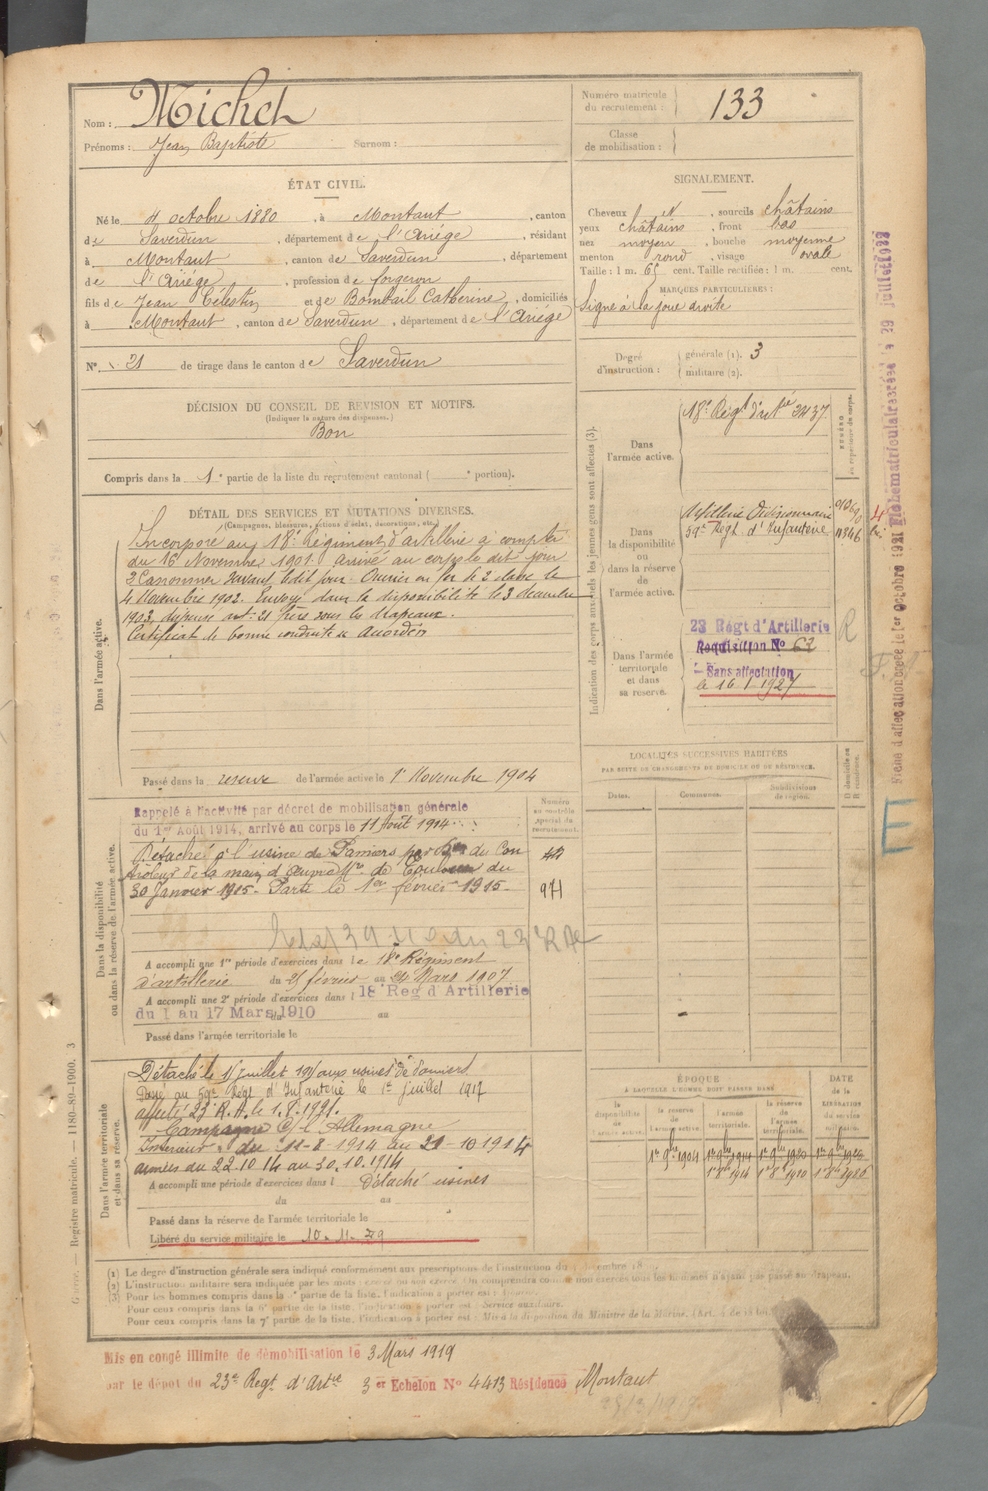 Nom : Michel
Prénoms : Jean Baptiste Surnom :
Numéro matricule du recrutement : 133
Classe de mobilisation :
ÉTAT CIVIL.
Né le 4 octobre 1880, à Montaut, canton
de Saverdun, département de l'Ariége, résidant
à Montaut, canton de Saverdun, département
de l'Ariége, profession de forgeron
fils de Jean Célestin et de Bombail Catherine, domiciliés
à Montaut, canton de Saverdun, département de l'Ariége
N° 21 de tirage dans le canton de Saverdun
SIGNALEMENT.
Cheveux et, sourcils châtains
yeux châtains, front bas
nez moyen, bouche moyenne
menton rond, visage ovale
Taille : 1 m. 65 cent. Taille rectifiée : 1 m. cent.
MARQUES PARTICULIÈRES :
Signe à la joue droite
Degré d'instruction : générale (1). 3
militaire (2).
DÉCISION DU CONSEIL DE REVISION ET MOTIFS.
(Indiquer la nature des dispenses.)
Bon
Compris dans la 1e partie de la liste du recrutement cantonal ( e portion).
DÉTAIL DES SERVICES ET MUTATIONS DIVERSES.
(Campagnes, blessures, actions d'éclat, décorations, etc.)
Dans l'armée active.
Incorporé au 18e Régiment d'artillerie à compter
du 16 Novembre 1901 arrivé au corps le dit jour
2e Canonnier servant ledit jour. Ouvrier en fer de 2e classe le
4 Novembre 1902. Envoyé dans la disponibilité le 3 décembre
1903, dispensé art. 21 frère sous les drapeaux.
Certificat de bonne conduite accordé
Passé dans la reserve de l'armée active le 1er Novembre 1904
Indication des corps auxquels les jeunes gens sont affectés (3).
Dans l'armée active.
18e Régt d'Artie 2437
Dans la disponibilité ou dans la réserve de l'armée active.
Artillerie Divisionnaire
59e Régt d'Infanterie
Dans l'armée territoriale et dans sa réserve.
23 Régt d'Artillerie
Réquisition No 62
Sans affectation
le 16 1 1927
R
LOCALITÉS SUCCESSIVES HABITÉES
PAR SUITE DE CHANGEMENTS DE DOMICILE OU DE RÉSIDENCE.
Dates. Communes. Subdivisions de région.
Dans la disponibilité ou dans la réserve de l'armée active.
Numéro au contrôle spécial du recrutement.
Rappelé à l'activité par décret de mobilisation générale
du 1er Août 1914, arrivé au corps le 11 août 1914
Détaché à l'usine de Pamiers par du Con
trôleur de la main d'œuvre Mre de Toulouse du
30 Janvier 1915. Parti le 1er février 1915
971
A accompli une 1re période d'exercices dans le 18e Régiment
d'artillerie du 25 février au 24 Mars 1907
A accompli une 2e période d'exercices dans l 18e Reg d'Artillerie
du 1 au 17 Mars 1910 au
Passé dans l'armée territoriale le
Dans l'armée territoriale et dans sa réserve.
Détaché le 1 juillet aux usines de Pamiers
Passé au 59e Régt d'Infanterie le 1er juillet 1917
affecté 23e R.A. le 1.8.1921.
Campagne C/ l'Allemagne
Intérieur du 11-8-1914 au 21-10-1914
armées du 22.10.14 au 30.10.1914
A accompli une période d'exercices dans l Détaché usines
du au
Passé dans la réserve de l'armée territoriale le
Libéré du service militaire le 10-11-29
ÉPOQUE
À LAQUELLE L'HOMME DOIT PASSER DANS
DATE de la LIBÉRATION du service militaire.
la disponibilité de l'armée active.
la réserve de l'armée active.
l'armée territoriale.
la réserve de l'armée territoriale.
1er 9bre 1904
(1) Le degré d'instruction générale sera indiqué conformément aux prescriptions de l'instruction du
(2) L'instruction militaire sera indiquée par les mots : exercé ou non exercé. On comprendra comme non exercés tous les hommes n'ayant pas passé au drapeau.
(3) Pour les hommes compris dans la partie de la liste, l'indication à porter est :
Pour ceux compris dans la 6e partie de la liste, l'indication à porter est : Service auxiliaire.
Pour ceux compris dans la 7e partie de la liste, l'indication à porter est : Mis à la disposition du Ministre de la Marine.
Mis en congé illimité de démobilisation le 3 Mars 1919
par le dépôt du 23e Regt d'Artie 3er Echelon No 4413 Résidence Montaut
Registre matricule. — 1180-89-1900. 3